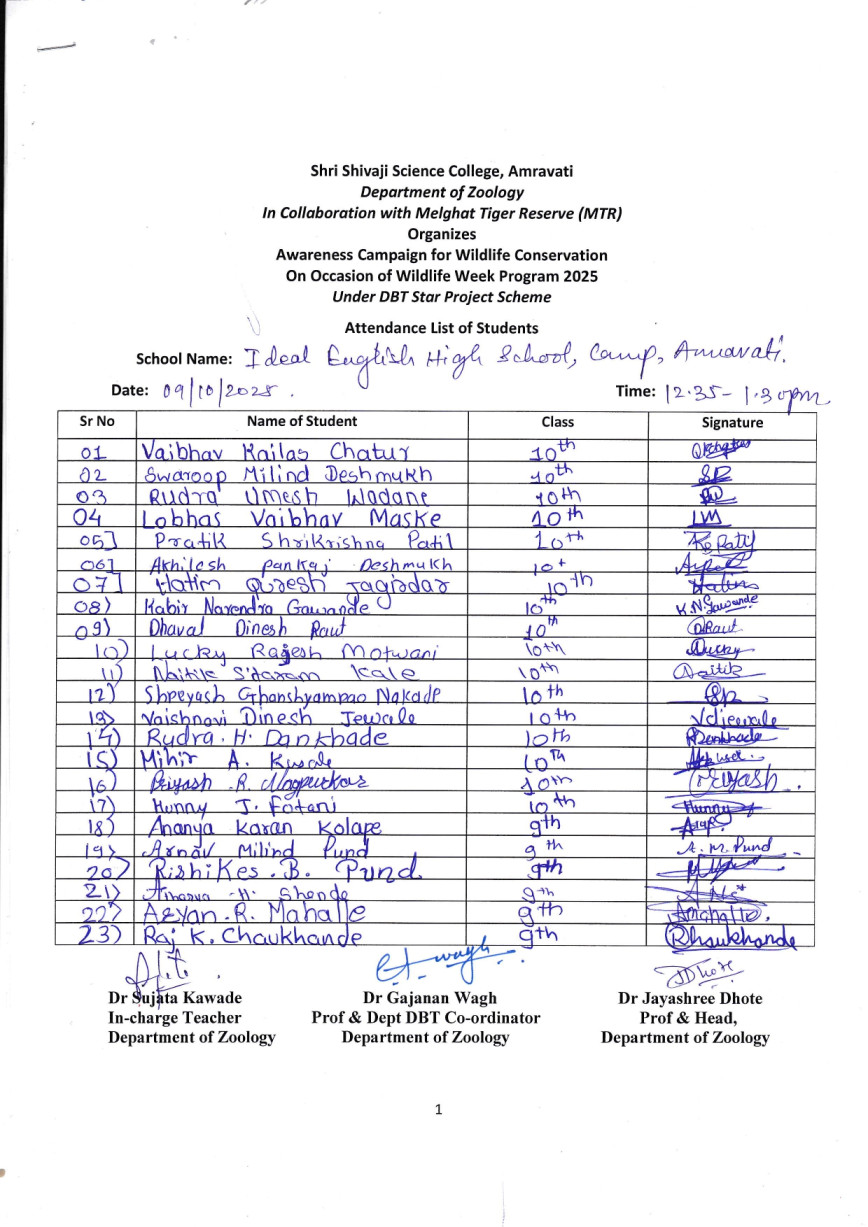 Shri Shivaji Science College, Amravati
Department of Zoology
In Collaboration with Melghat Tiger Reserve (MTR)
Organizes
Awareness Campaign for Wildlife Conservation
On Occasion of Wildlife Week Program 2025
Under DBT Star Project Scheme
Attendance List of Students
School Name: Ideal English High School, Camp, Amravati.
Date: 09/10/2025. Time: 12.35 - 1.30pm
Sr No Name of Student Class Signature
01 Vaibhav Kailas Chatur 10th
02 Swaroop Milind Deshmukh 10th
03 Rudra Umesh Wadane 10th
04 Lobhas Vaibhav Maske 10th LM
05] Pratik Shrikrishna Patil 10th
06] Akhilesh pankaj Deshmukh 10t
07] Hatim Quresh Jagirdar 10th Hatim
08) Kabir Narendra Gawande 10th K.N.Gawande
09) Dhaval Dinesh Raut 10th DRaut
10) Lucky Rajesh Motwani 10th Lucky
11) Naitik Kale 10th Naitik
12) Shreyash Ghanshyamrao Nakade 10th
13) Vaishnavi Dinesh Jewale 10th Vdjewale
14) Rudra. H. Dankhade 10th RDankhade
15) Mihir A. 10Th
16) Priyash .R. 10th Priyash.
17) Hunny J. Fatani 10th Hunny
18) Ananya Karan Kolape 9th
19) Arnav Milind Pund 9th A.M.Pund
20) Rishikes.B. Pund. 9th
21) H. Shende 9th
22) Aryan.R. Mahalle 9th
23) Raj K. Chaukhande 9th Rhaukhande
Wagh
JDhote
Dr Sujata Kawade Dr Gajanan Wagh Dr Jayashree Dhote
In-charge Teacher Prof & Dept DBT Co-ordinator Prof & Head,
Department of Zoology Department of Zoology Department of Zoology
1